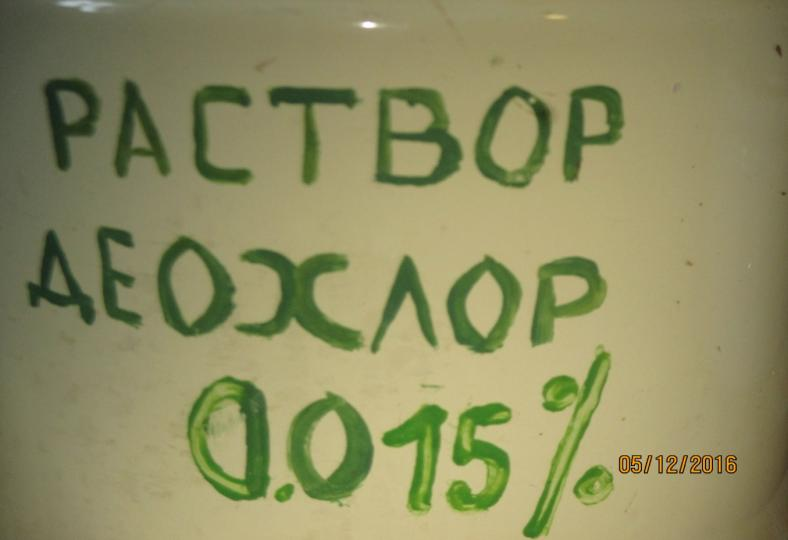 РАСТВОР
ДЕОХЛОР
0.015%
05/12/2016